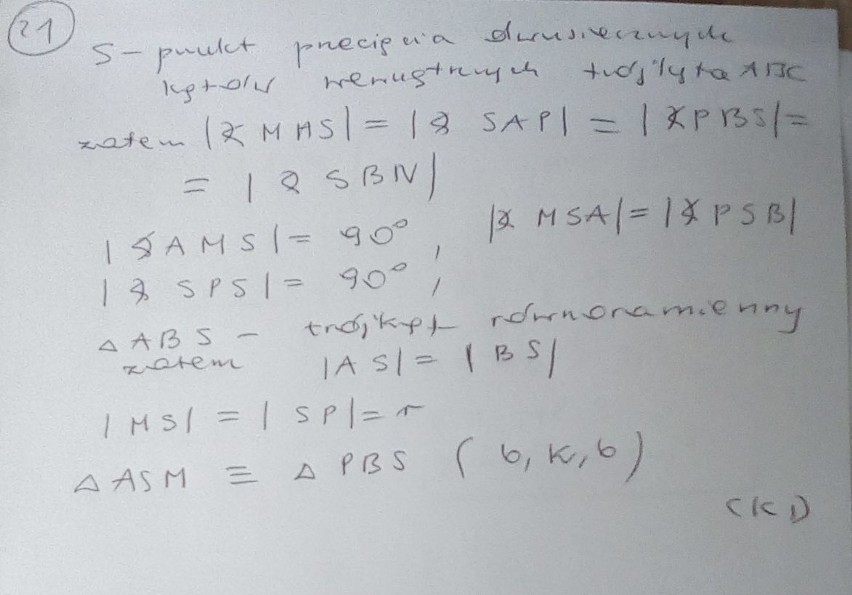 21
S - punkt przecięcia dwusiecznych
kątów wewnętrznych trójkąta ABC
zatem |∢ MAS| = |∢ SAP| = |∢ PBS| =
= |∢ SBN|
|∢ AMS| = 90°, |∢ MSA| = |∢ PSB|
|∢ SPS| = 90°,
△ ABS - trójkąt równoramienny
zatem |AS| = |BS|
|MS| = |SP| = r
△ ASM ≡ △ PBS (b, k, b)
CKD